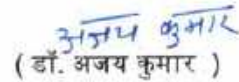 अजय कुमार
( डॉ. अजय कुमार )